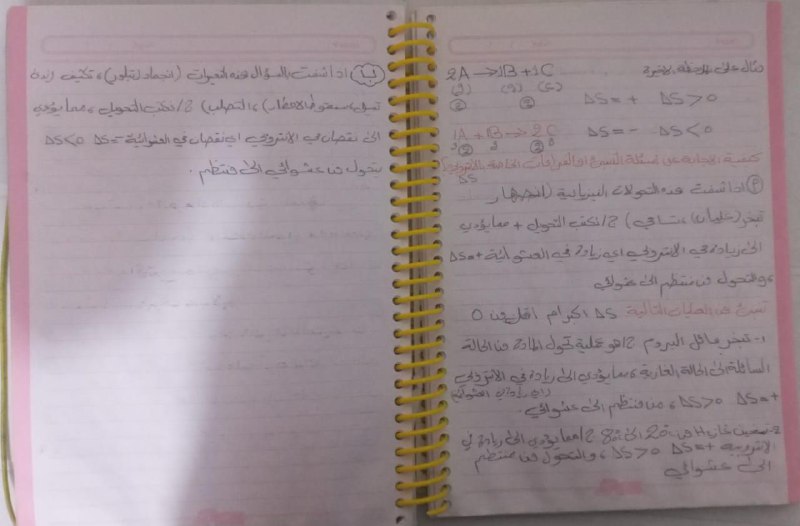 مثال على الملاحظة الاخيرة 2A → 1B + 1C
(g) (g) (g)
ΔS = + ΔS > 0
② ②
1A + B → 2C ΔS = - ΔS < 0
كيفية الاجابة على اسئلة التنبؤ او الفراغات الخاصة بالانتروبي
ΔS
(P) اذا شفت هذه التحولات الفيزيائية (انصهار
تبخر (غليان)، تسامي) ج/ نكتب التحول + مما يؤدي
الى زيادة في الانتروبي اي زيادة في العشوائية ΔS = +
، والتحول من منتظم الى عشوائي
تنبئ هل للعمليات التالية ΔS اكبر ام اقل من 0
1- تبخر سائل البروم ج/ هو عملية تحول المادة من الحالة
السائلة الى الحالة الغازية، مما يؤدي الى زيادة في الانتروبي
(اي زيادة في العشوائية)
ΔS = + ΔS > 0، من منتظم الى عشوائي.
2- تسخين غاز H من 20 الى 80 ج/ مما يؤدي الى زيادة في
الانتروبيه ΔS = + ΔS > 0، والتحول من منتظم
الى عشوائي
(ب) اذا شفت بالسؤال هذه التغيرات (انجماد (تبلور)، تكثيف
(سقوط الامطار)، التصلب) ج/ نكتب التحويل، مما يؤدي
الى نقصان في الانتروبي اي نقصان في العشوائية ΔS = - ΔS < 0
يتحول من عشوائي الى منتظم.